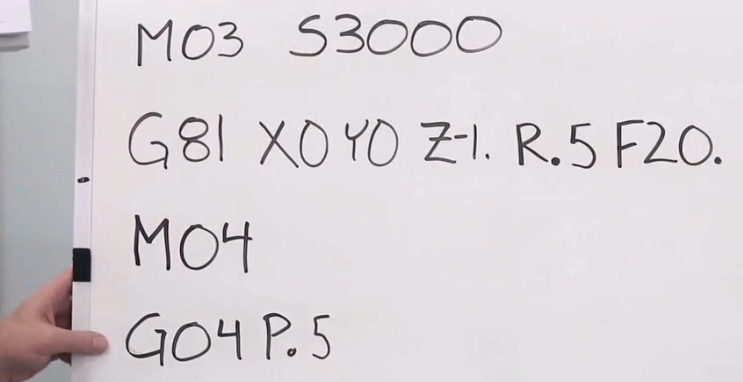 M03 S3000
G81 X0 Y0 Z-1. R.5 F20.
M04
G04 P.5